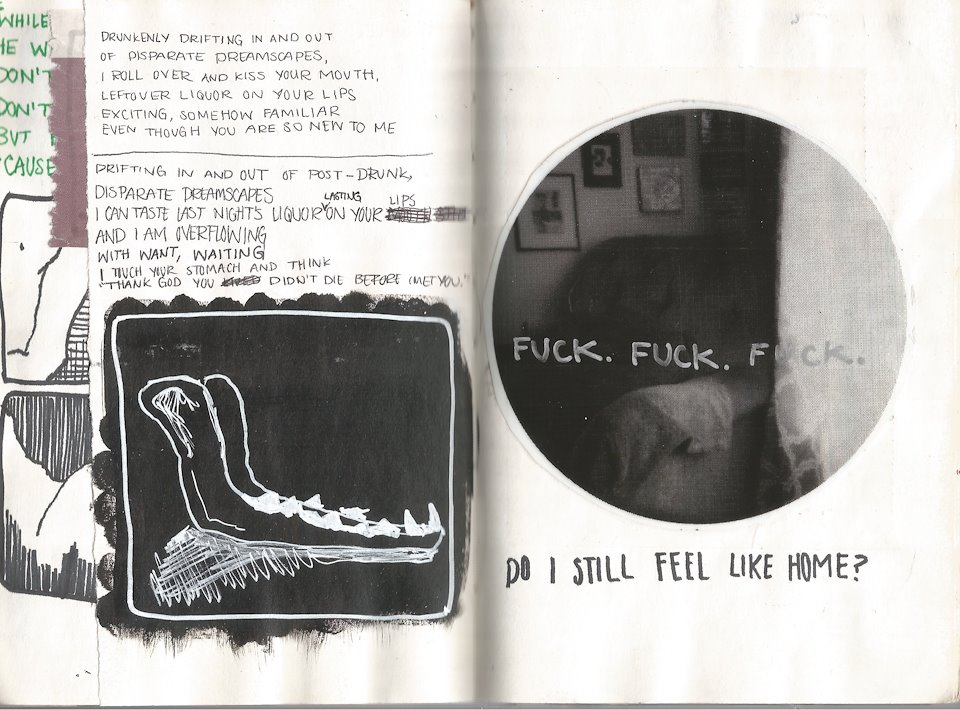 WHILE
HE W
DON'T
DON'T
BUT
'CAUSE
DRUNKENLY DRIFTING IN AND OUT
OF DISPARATE DREAMSCAPES,
I ROLL OVER AND KISS YOUR MOUTH,
LEFTOVER LIQUOR ON YOUR LIPS
EXCITING, SOMEHOW FAMILIAR
EVEN THOUGH YOU ARE SO NEW TO ME
DRIFTING IN AND OUT OF POST-DRUNK,
DISPARATE DREAMSCAPES
I CAN TASTE LAST NIGHT'S LIQUOR LASTING ON YOUR LIPS
AND I AM OVERFLOWING
WITH WANT, WAITING
I TOUCH YOUR STOMACH AND THINK
"THANK GOD YOU DIDN'T DIE BEFORE I MET YOU."
FUCK. FUCK. FUCK.
DO I STILL FEEL LIKE HOME?